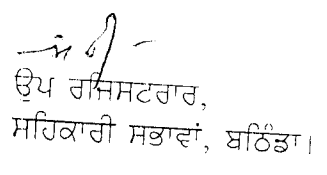 ਉਪ ਰਜਿਸਟਰਾਰ,
ਸਹਿਕਾਰੀ ਸਭਾਵਾਂ, ਬਠਿੰਡਾ।